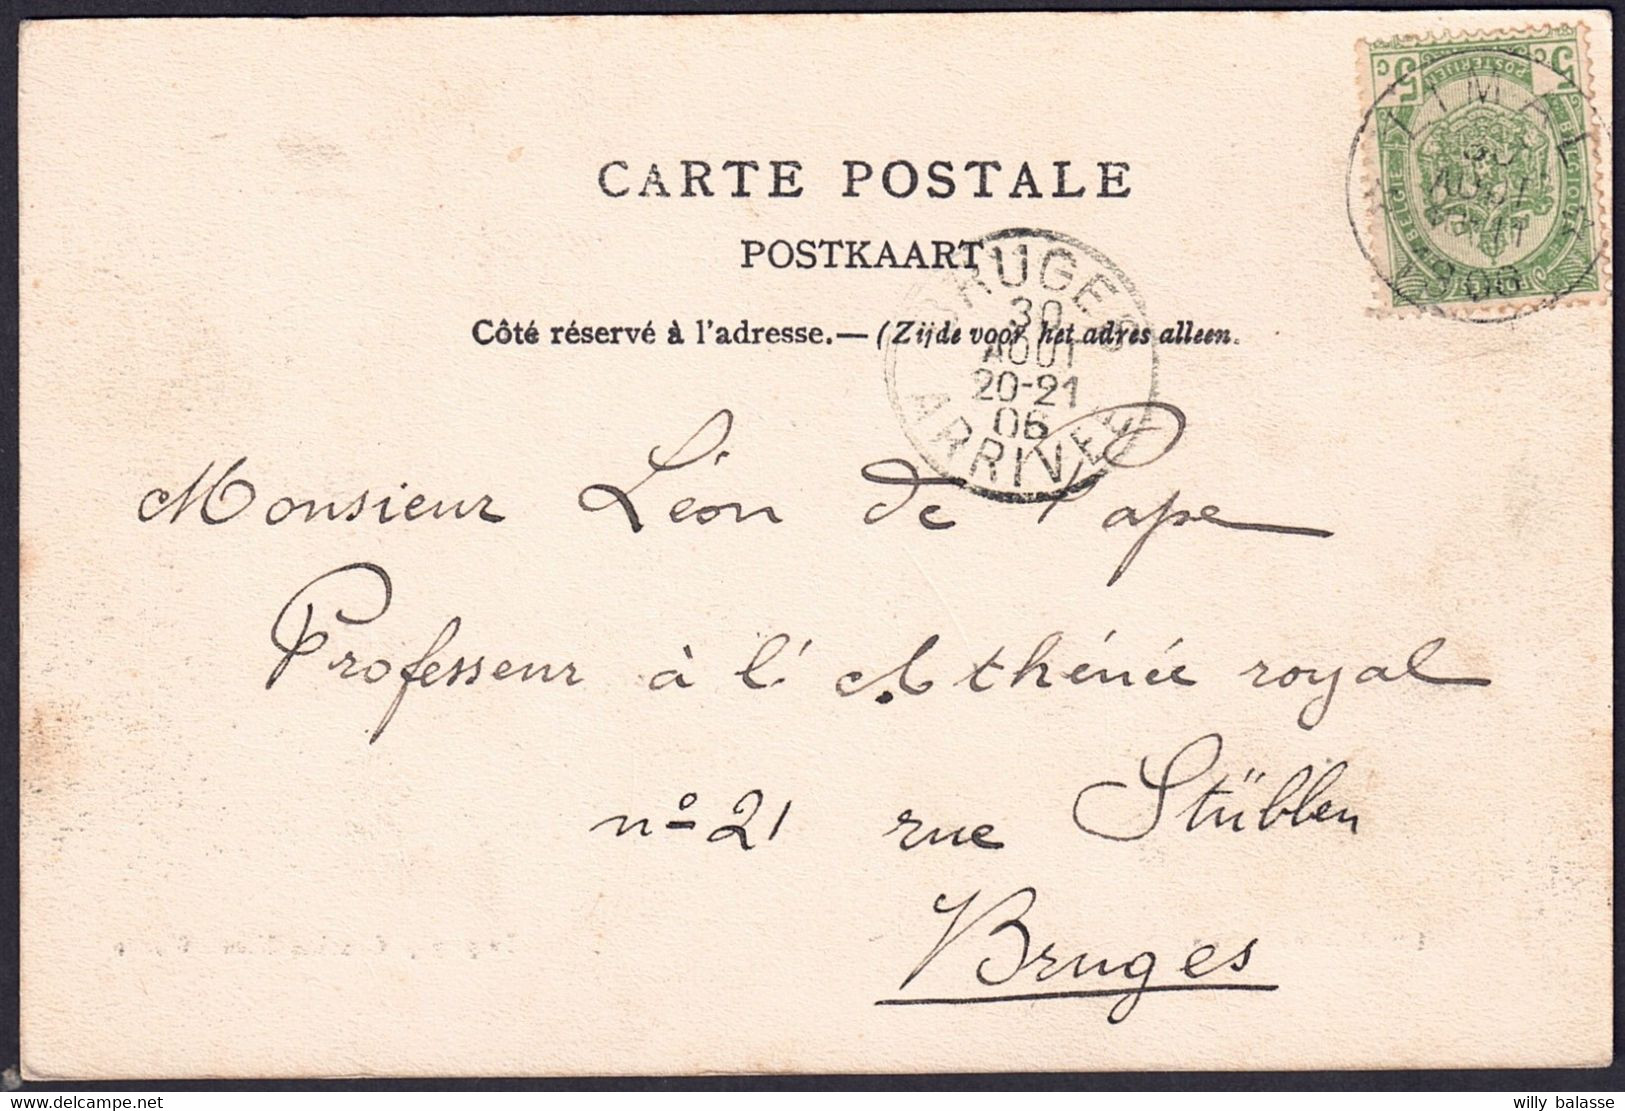 CARTE POSTALE
POSTKAART
Côté réservé à l'adresse.— (Zijde voor het adres alleen.
BRUGES
30
AOUT
20-21
06
ARRIVEE
LIMAL
30
AOUT
1906
5 c
POSTERIJEN
5 c
BELGIQUE
BELGIE
Monsieur Léon de Pape
Professeur à l'Athénée royal
nº 21 rue Stübben
Bruges
willy balasse